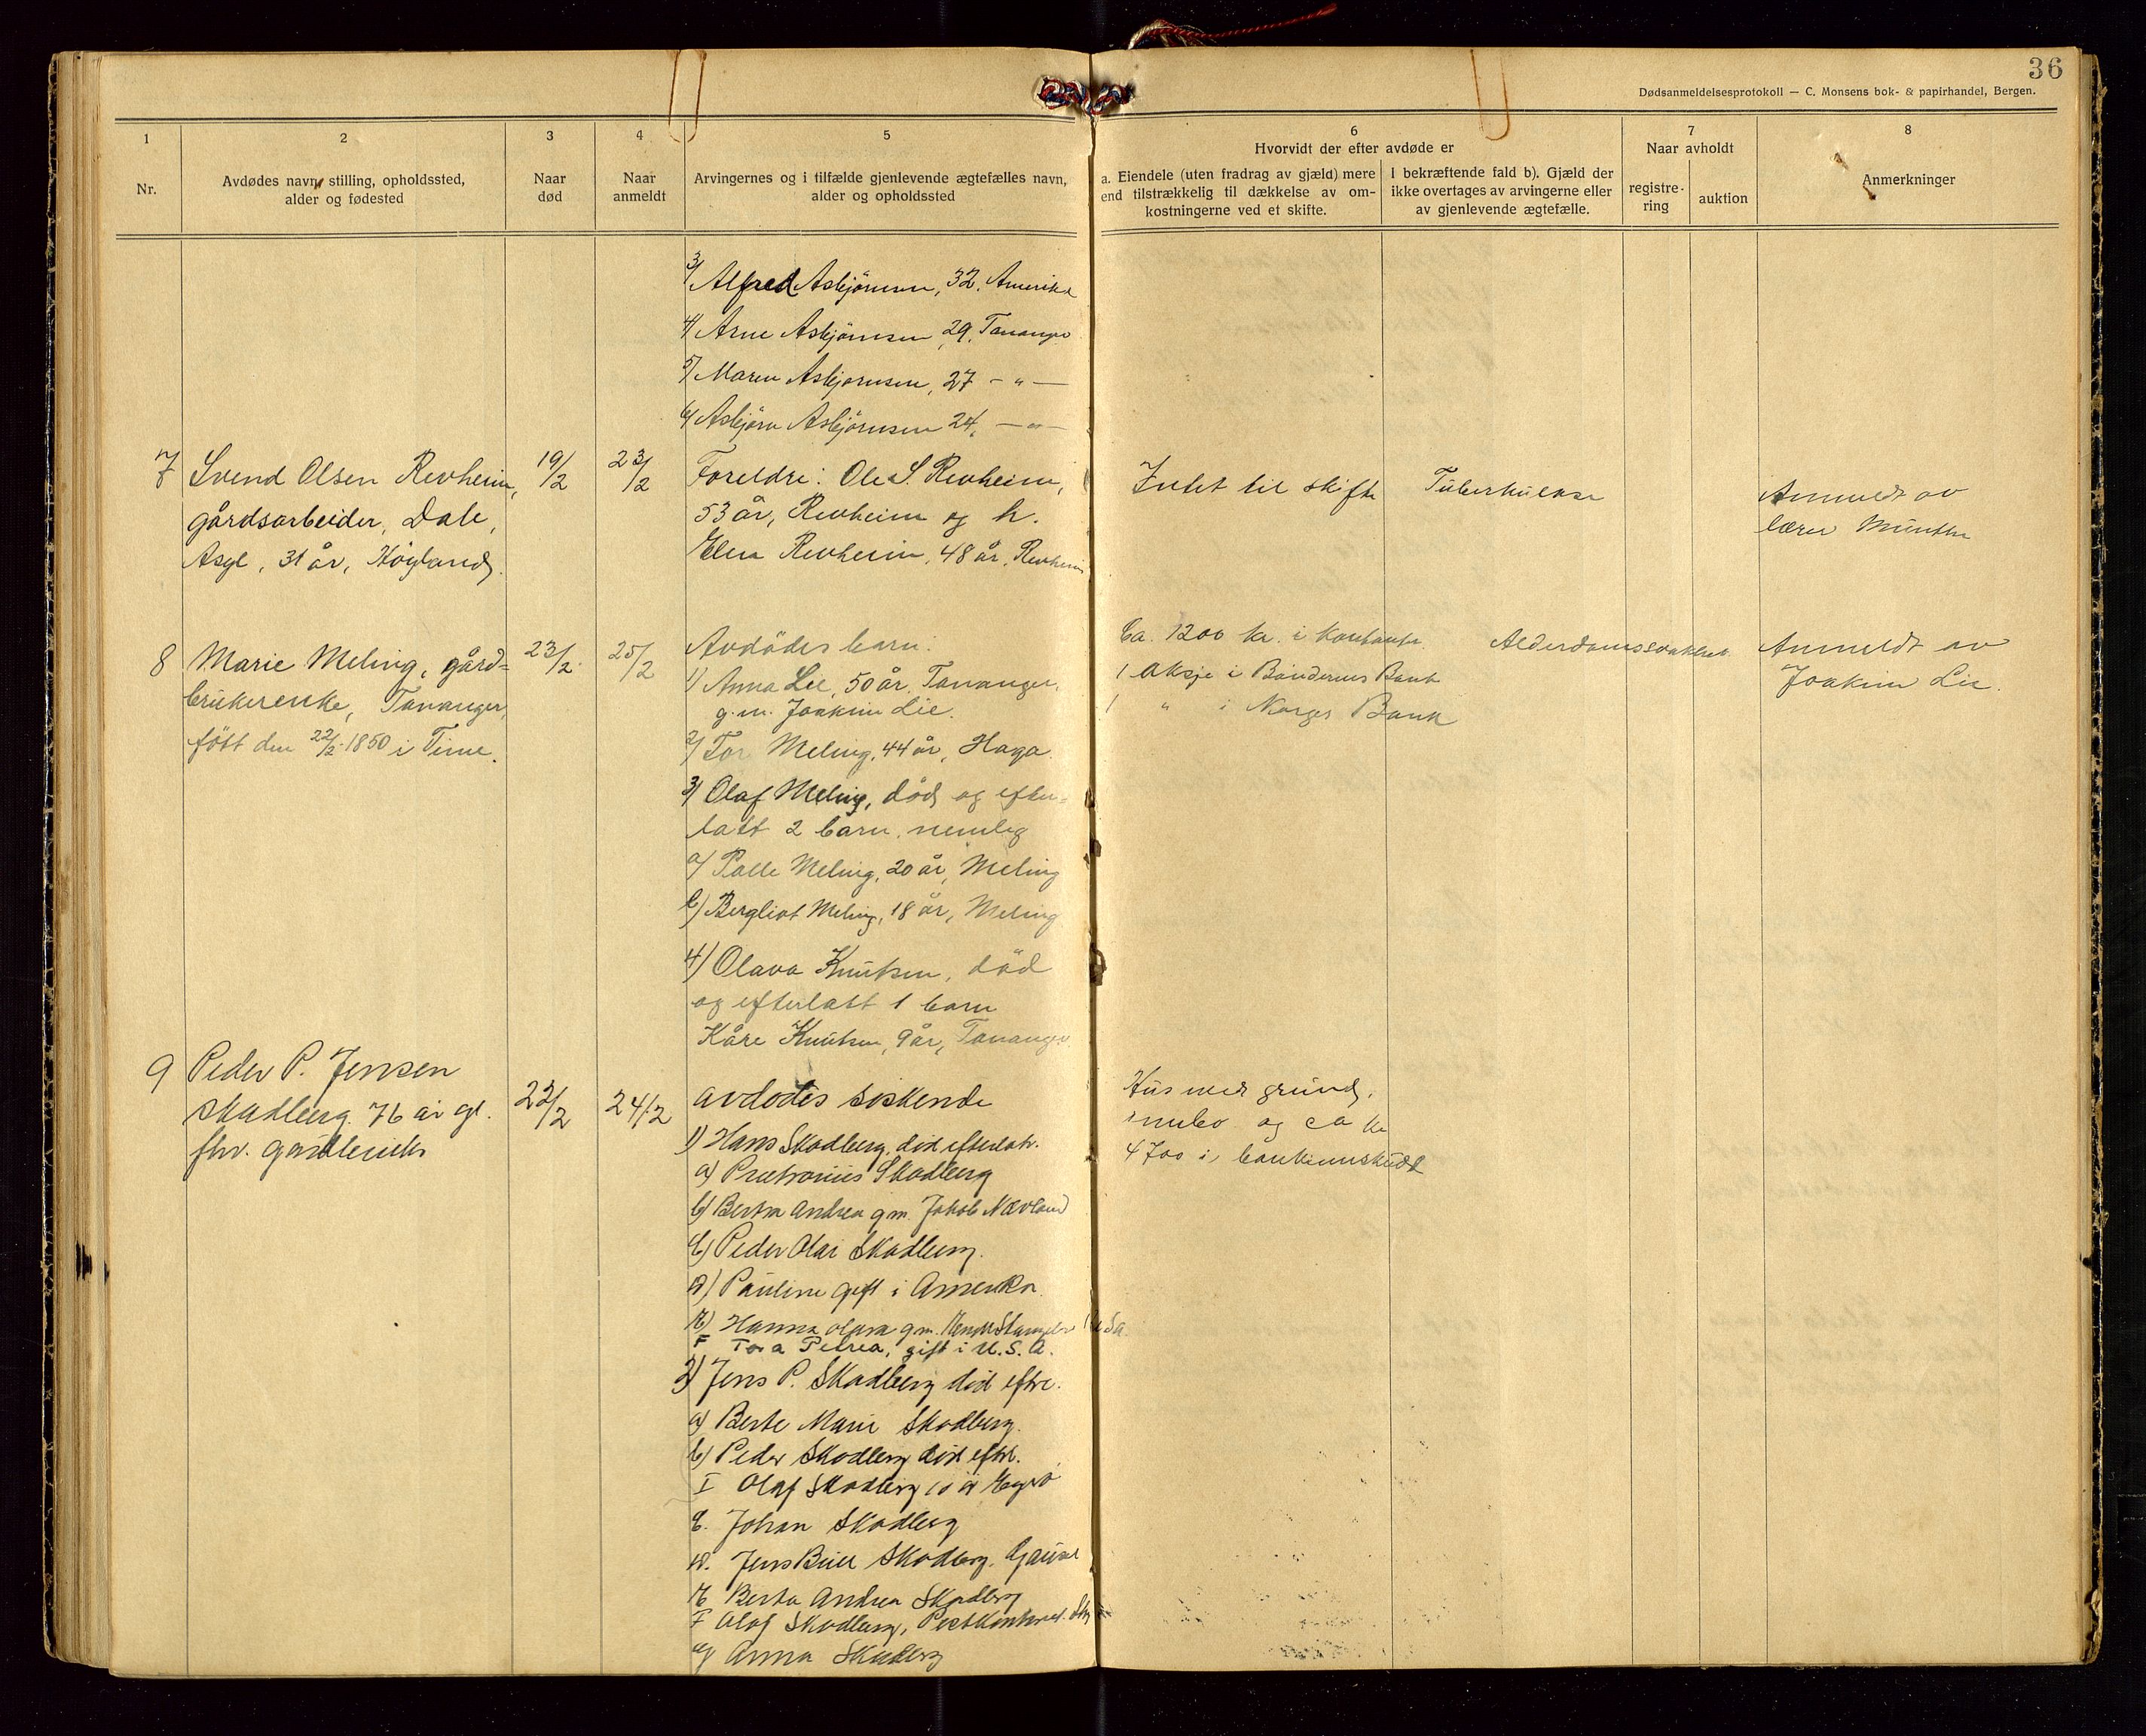 36
Dødsanmeldelsesprotokoll — C. Monsens bok- & papirhandel, Bergen.
1
2
3
4
5
6
7
8
Nr.
Avdødes navn, stilling, opholdssted,
alder og fødested
Naar
død
Naar
anmeldt
Arvingernes og i tilfælde gjenlevende ægtefælles navn,
alder og opholdssted
Hvorvidt der efter avdøde er
a. Eiendele (uten fradrag av gjæld) mere
end tilstrækkelig til dækkelse av om-
kostningerne ved et skifte.
I bekræftende fald b). Gjæld der
ikke overtages av arvingerne eller
av gjenlevende ægtefælle.
Naar avholdt
registre-
ring
auktion
Anmerkninger
3/ Alfred Asbjörnsen, 32, Amerika
4/ Arne Asbjörnsen, 29, Tananger
5/ Maren Asbjørnsen, 27 — " —
6/ Asbjörn Asbjörnsen 24, — " —
7
Svend Olsen Revheim,
gårdsarbeider, Dale,
31 år, Höyland
19/2
23/2
Foreldre: Ole S. Revheim,
53 år, Revheim og h.
Elen Revheim, 48 år, Revheim
Intet til skifte
Tuberkulose
Anmeldt av
lærer Munthe
8
Marie Meling, gård-
brukerenke, Tananger,
født den 22/2-1850 i Time.
23/2
25/2
Avdödes barn:
1) Anna Lie, 50 år, Tananger,
g.m. Joakim Lie.
2/ Tor Meling, 44 år, Haga
3/ Olaf Meling, död og efter-
latt 2 barn, nemlig
a/ Palle Meling, 20 år, Meling
b) Bergliot Meling, 18 år, Meling
4) Olava Knutsen, död
og efterlatt 1 barn
Kåre Knutsen, 9 år, Tananger.
Ca. 1200 kr. i kontanter
1 aksje i Böndernes Bank
1 " i Norges Bank
Alderdomssvakhet
Anmeldt av
Joakim Lie.
9
Peder P. Jensen
Skadberg 76 år gl.
fhv. gårdbruker
22/2
24/2
avdødes søskende
1) Hans Skadberg, død efterlatt.
a) Skadberg
b) Berta Andrea g.m. Jakob Nævland
c) Peder Olai Skadberg.
d) Pauline gift i Amerika.
e) Hanna g.m.
F Tora Petrea, gift i U.S.A.
2) Jens P. Skadberg død efterl.
a) Berte Marie Skadberg.
b) Peder Skadberg død efterl.
I Olaf Skadberg 10 år
c. Johan Skadberg
d. Jens Skadberg, Gausel
e Berta Andrea Skadberg
F Olaf Skadberg, Postkontoret.
g Anna Skadberg
Hus med grund,
innbo og ca kr
4700 i bankinnskudd